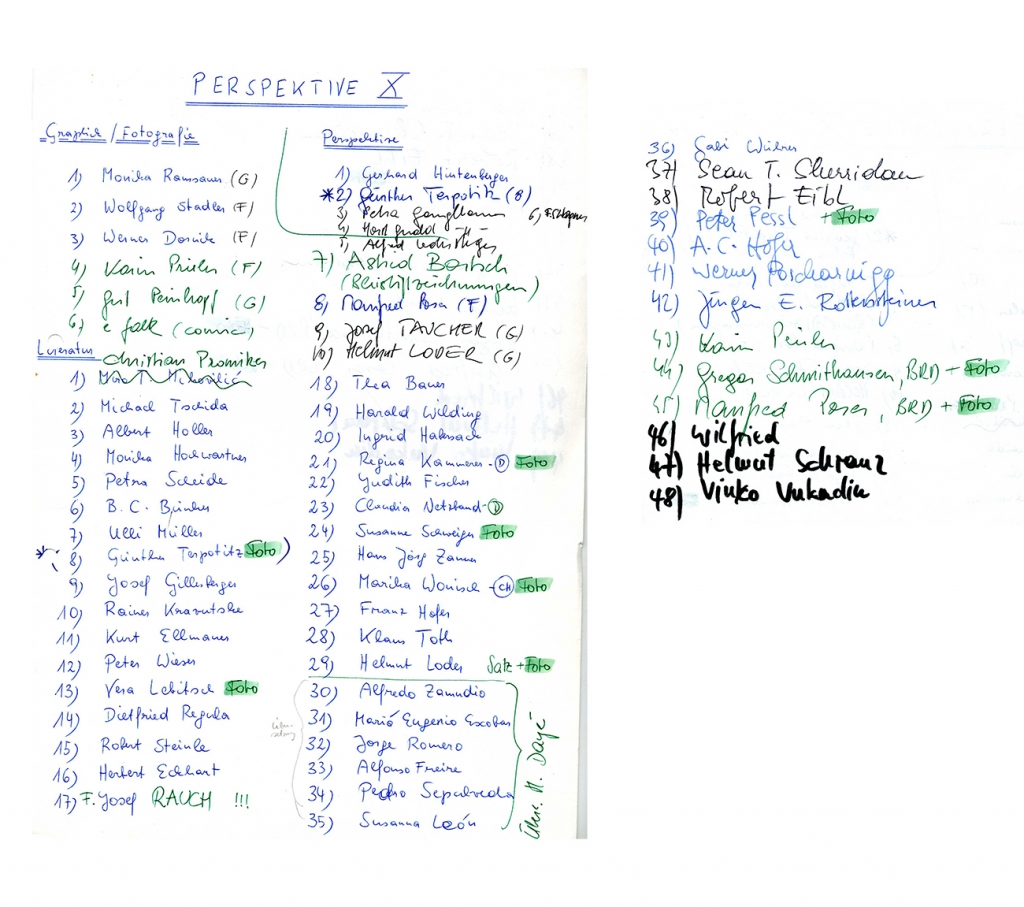 PERSPEKTIVE X
Graphik / Fotografie
1) Monika Ramsauer (G)
2) Wolfgang Stadler (F)
3) Werner (F)
4) Karin (F)
5) Gert (G)
6) e falk (comic)
Perspektive
1) Gerhard Hintenberger
*2) Günther Terpotitz (8)
3) Petra
4) Horst
5) Alfred
6)
7) Astrid Bartsch
(Bleistiftzeichnungen)
8) Manfred (F)
9) Josef TAUCHER (G)
10) Helmut LODER (G)
Literatur
Christian Promitzer
1)
2) Michael Tschida
3) Albert Holler
4) Monika Hochwartner
5) Petra Scheide
6) B. C.
7) Ulli Müller
* 8) Günther Terpotitz Foto )
9) Josef Gillesberger
10) Rainer
11) Kurt Ellmauer
12) Peter Wieser
13) Vera Lebitsch Foto
14) Dietfried Regula
15) Robert Steinle
16) Herbert Eckhart
17) F. Josef RAUCH !!!
18) Thea Bauer
19) Harald Wilding
20) Ingrid
21) Regina Kammerer - D Foto
22) Judith Fischer
23) Claudia Netzband - D
24) Susanne Schweiger Foto
25) Hans Jörg Zauner
26) Marika Wonisch - CH Foto
27) Franz Hofer
28) Klaus Toth
29) Helmut Loder Satz + Foto
30) Alfredo Zamudio
31) Mario Eugenio Escobar
32) Jorge Romero
33) Alfonso Freire
34) Pedro Sepulveda
35) Susanna León
Übers. M. Dayé
36) Gabi
37) Sean T. Sherridan
38) Robert Eibl
39) Peter Pessl + Foto
40) A.C. Hofer
41) Werner Poscharnigg
42) Jürgen E. Rottensteiner
43) Karin
44) Gregor Schnitthausen, BRD + Foto
45) Manfred BRD + Foto
46) Wilfried
47) Helmut Schranz
48) Vinko Vukadin